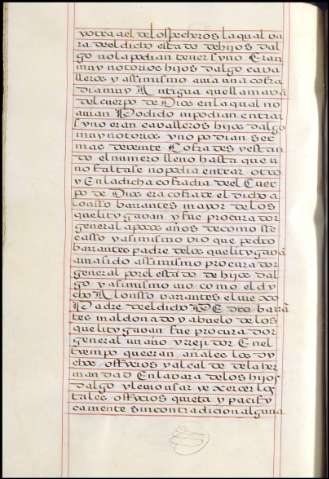 y otra ael del ospecheros la qual va
ra del dicho estado de hijos dal
go no la podian tener syno Eran
muy notorios hijos dalgo cava
lleros y assimismo avia una cofra
dia muy Antigua que llamava
del cuerpo de Dios en la qual no
avian Podido ni podian entrar
syno eran cavalleros hijos dalgo
muy notorios y no podian ser
mas de veinte Cofrades y estan
do el numero lleno hasta que u
no faltase no podia entrar otro
y En la dicha cofradia del Cuer
po de Dios era cofrade el dicho a
lonsso barrantes mayor de los
que lityguan y fue procurador
general a pocos años de como se
casso y asimismo vio que pedro
barrantes padre de los que lityguã
avia sido assimismo procurador
general por el estado de hijos dal
go y asimismo vio como el dy
cho Alonsso varrantes el viexo
Padre del dicho PEdro barrã
tes maldonado y abuelo de los
que lityguan fue procurador
general un año y rejidor En el
tiempo que eran añales los dy
chos officios y alcalde de la her
mandad En la vara de los hijos
dalgo y le vio usar y exercer los
tales officios quieta y pacify
camente sin contradicion alguna